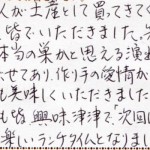 人が土産として買ってきてく
皆でいただきました。
本当の巣かと思える演
せてあり、作り手の愛情か
も美味しくいただきました
も皆 興味津津で「次回に
楽しいランチタイムとなりまし